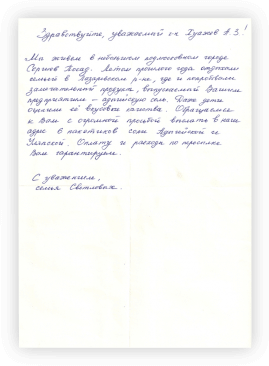 Здравствуйте, уважаемый г-н Хуажев А.З.!
Мы живем в небольшом подмосковном городе
Сергиев Посад. Летом прошлого года отдыхали
семьей в Лазаревском р-не, где и попробовали
замечательный продукт, выпускаемый Вашим
предприятием - адыгейскую соль. Даже дети
оценили её вкусовые качества. Обращаемся
к Вам с огромной просьбой выслать в наш
адрес 10 пакетиков соли Адыгейской и
Уляпской. Оплату и расходы по пересылке
Вам гарантируем.
С уважением,
семья